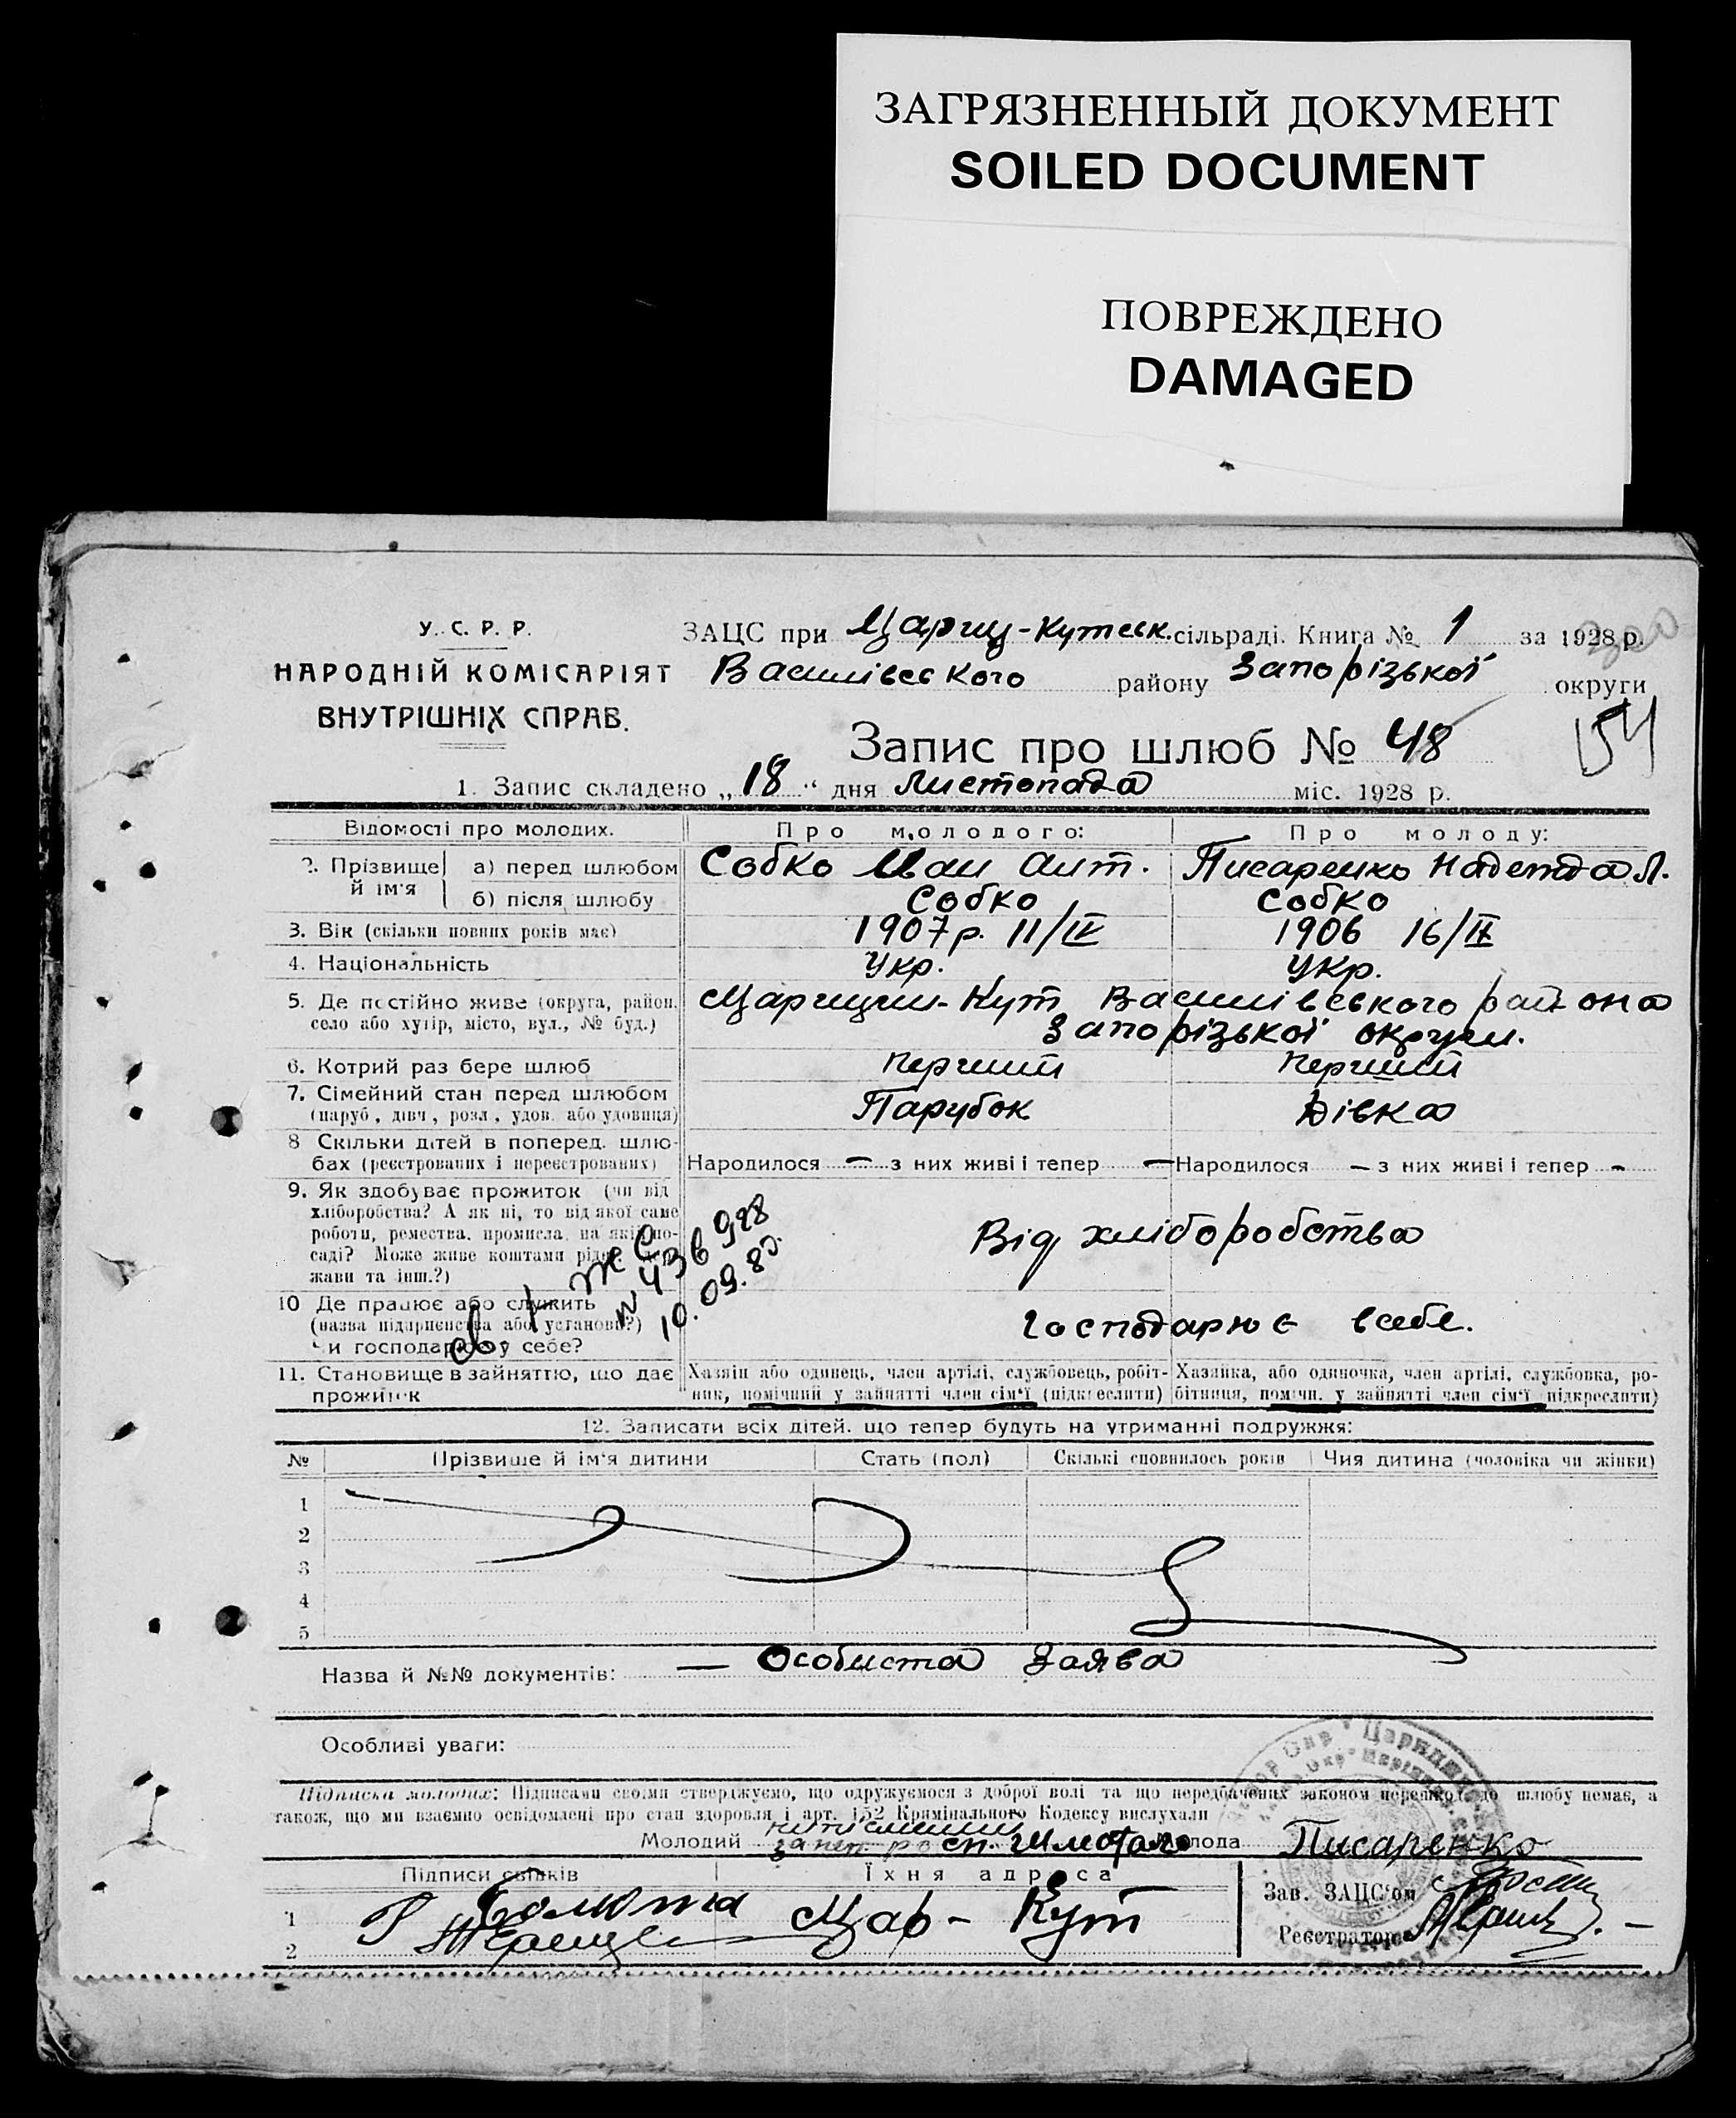 ЗАГРЯЗНЕННЫЙ ДОКУМЕНТ
SOILED DOCUMENT
ПОВРЕЖДЕНО
DAMAGED
У. С. Р. Р.
НАРОДНІЙ КОМІСАРІЯТ
ВНУТРІШНІХ СПРАВ.
ЗАЦС при Цариц-Кутськ. сільраді. Книга № 1 за 1928 р.
Василівського району Запорізької округи
Запис про шлюб № 48
154
1. Запис складено „18" дня Листопада міс. 1928 р.
Відомості про молодих. Про молодого: Про молоду:
2. Прізвище й ім'я а) перед шлюбом Собко Іван Ант. Писаренко Надежда Л.
б) після шлюбу Собко Собко
3. Вік (скільки повних років має) 1907 р. 11/IV 1906 16/IX
4. Національність Укр. Укр.
5. Де постійно живе (округа, район, Царицин-Кут Василівського района
село або хутір, місто, вул., № буд.) Запорізької округи.
6. Котрий раз бере шлюб перший перший
7. Сімейний стан перед шлюбом Парубок Дівка
(паруб., дівч., розл., удов. або удовиця)
8 Скільки дітей в поперед. шлю-
бах (реєстрованих і нереєстрованих) Народилося — з них живі і тепер — Народилося — з них живі і тепер -
9. Як здобуває прожиток (чи від
хліборобства? А як ні, то від якої саме
роботи, ремества, промисла, на якій по-
саді? Може живе коштами
жави та інш.?)
Від хліборобства
N 436928
10.09.80.
10 Де працює або служить
(назва підприємства або установи?)
Чи господарює у себе?
Господарює в себе.
11. Становище в зайняттю, що дає Хазяїн або одинець, член артілі, службовець, робіт- Хазяйка, або одиночка, член артілі, службовка, ро-
прожиток ник, помічний у зайнятті член сім'ї (підкреслити) бітниця, помічн. у зайнятті член сім'ї підкреслити)
12. Записати всіх дітей, що тепер будуть на утриманні подружжя:
№ Прізвище й ім'я дитини Стать (пол) Скількі сповнилось років Чия дитина (чоловіка чи жінки)
1
2
3
4
5
Назва й №№ документів: — Особиста Заява
Особливі уваги:
Підписка молодих: Підписами своїми стверджуємо, що одружуємося з доброї волі та що передбачених законом перешкод до шлюбу немає, а
також, що ми взаємно освідомлені про стан здоров'я і арт. 152 Кримінального Кодексу вислухали
Молодий Молода Писаренко
Підписи свідків Їхня адреса Зав. ЗАЦС'ом
1 Цар- Кут
2 Реєстратор